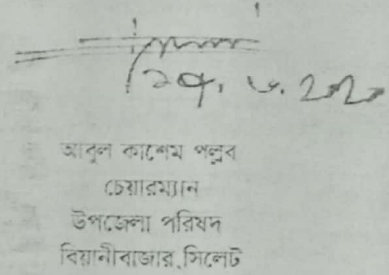 আবুল কাশেম পল্লব
চেয়ারম্যান
উপজেলা পরিষদ
বিয়ানীবাজার,সিলেট